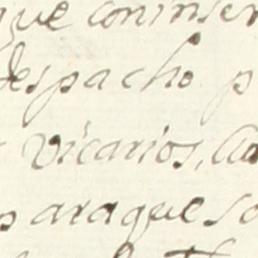 que coninser
despacho p
vicarios, Cu
paraque so